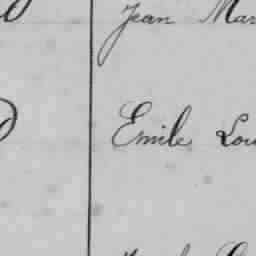 Jean Mar
Emile Lou